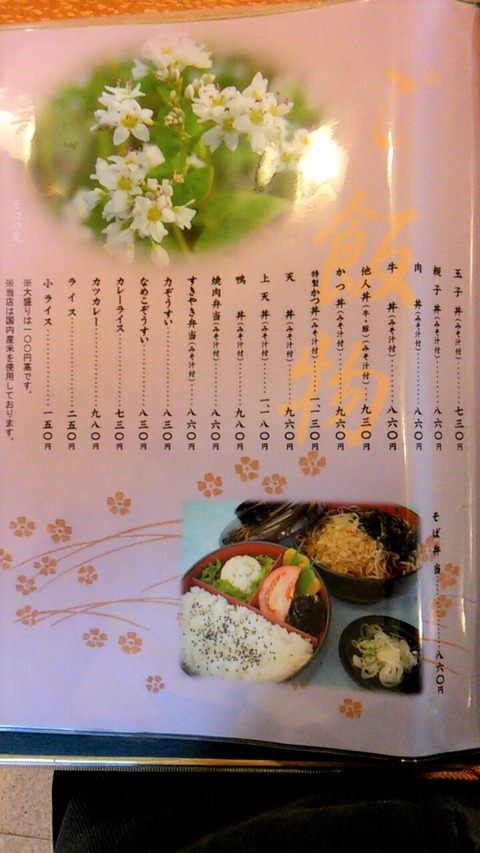 ご飯物
玉子丼(みそ汁付)………七三〇円
親子丼(みそ汁付)………八六〇円
肉丼(みそ汁付)………八六〇円
牛丼(みそ汁付)………八六〇円
他人丼(牛・豚)(みそ汁付)…九三〇円
かつ丼(みそ汁付)………九六〇円
特製かつ丼(みそ汁付)…一一三〇円
天丼(みそ汁付)………九六〇円
上天丼(みそ汁付)……一一八〇円
鴨丼(みそ汁付)………九八〇円
焼肉弁当(みそ汁付)………八六〇円
すきやき弁当(みそ汁付)……八六〇円
力ぞうすい………八三〇円
なめこぞうすい………八三〇円
カレーライス………七三〇円
カツカレー………九八〇円
ライス………二五〇円
小ライス………一五〇円
※大盛りは一〇〇円高です。
※当店は国内産米を使用しております。
そばの花
そば弁当………八六〇円